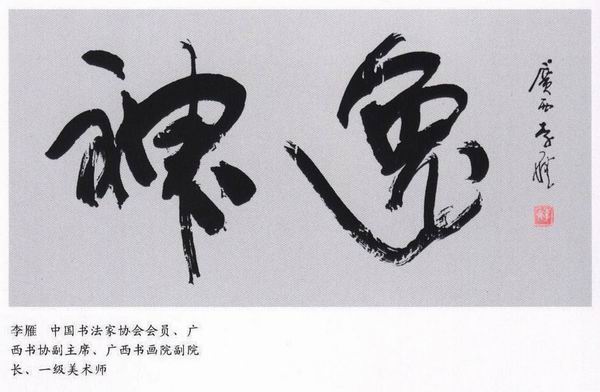 神逸
廣西李雁
李雁 中国书法家协会会员、广
西书协副主席、广西书画院副院
长、一级美术师